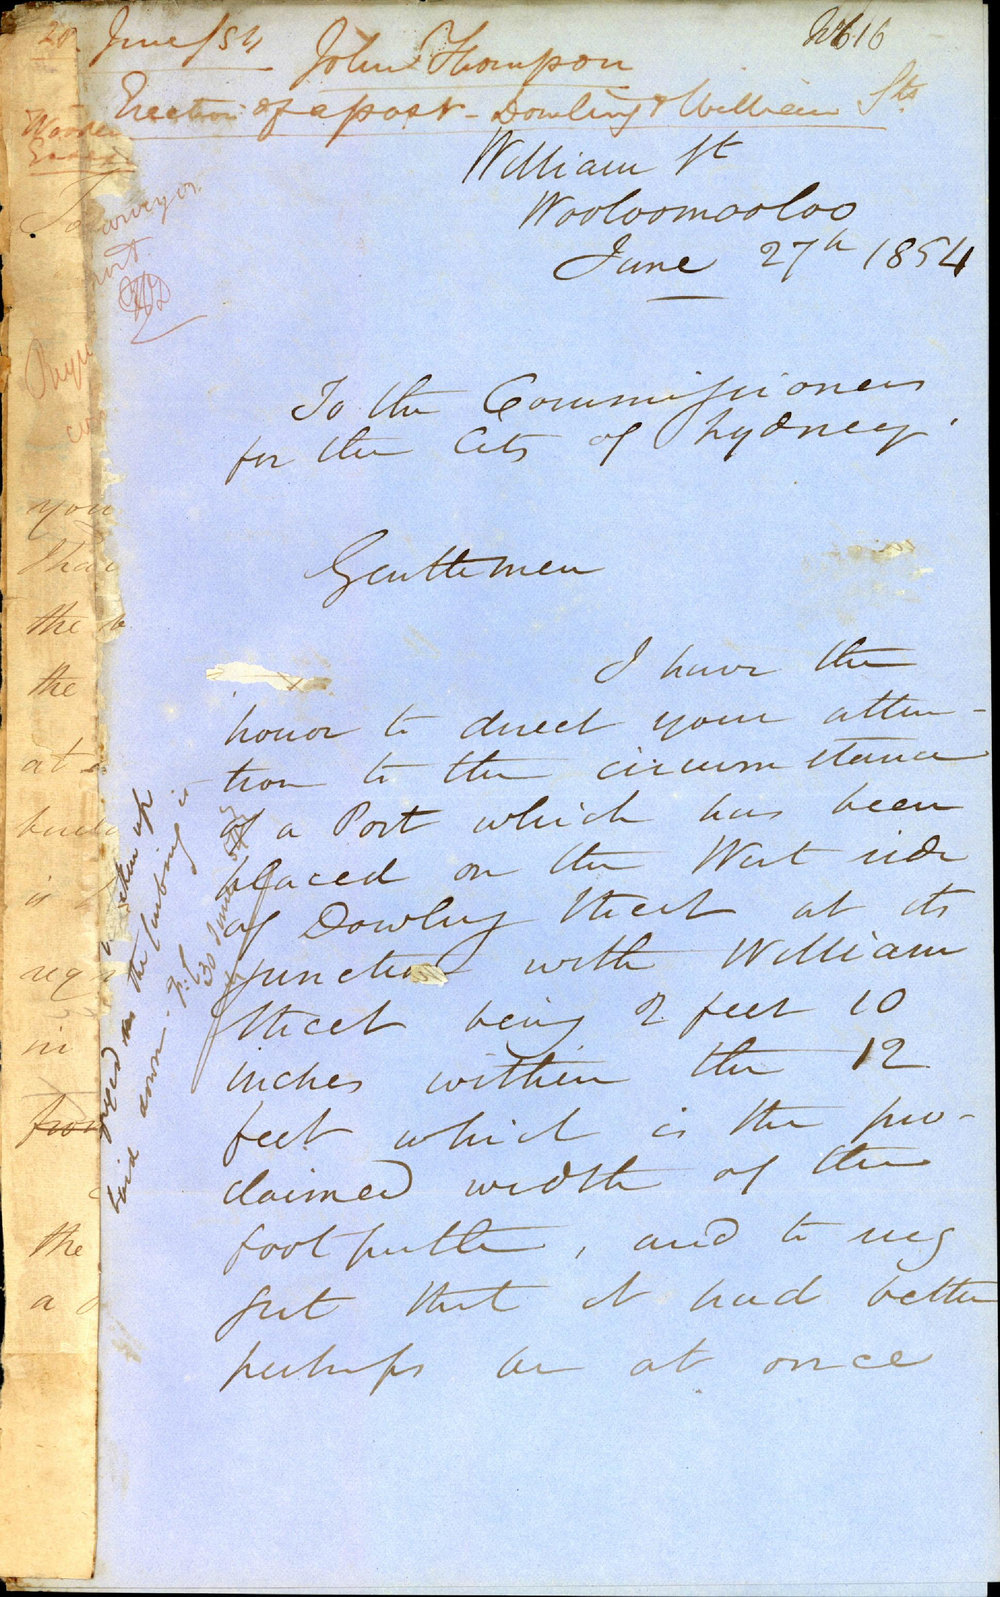 28 June/54 John Thompson
Erection of a post - Dowling & William Sts
William St
Wooloomooloo
June 27th 1854
Surveyor
To the Commissioners
for the City of Sydney.
Gentlemen
I have the
honor to direct your atten-
tion to the circumstance
of a Post which has been
placed on the West side
of Dowling Street at its
junction with William
Street being 2 feet 10
inches within the 12
feet which is the pro-
claimed width of the
foot path, and to sug
gest that it had better
perhaps be at once
you
the
the
at
in
the
a
taken up
as the kerbing is
laid down.
30 June